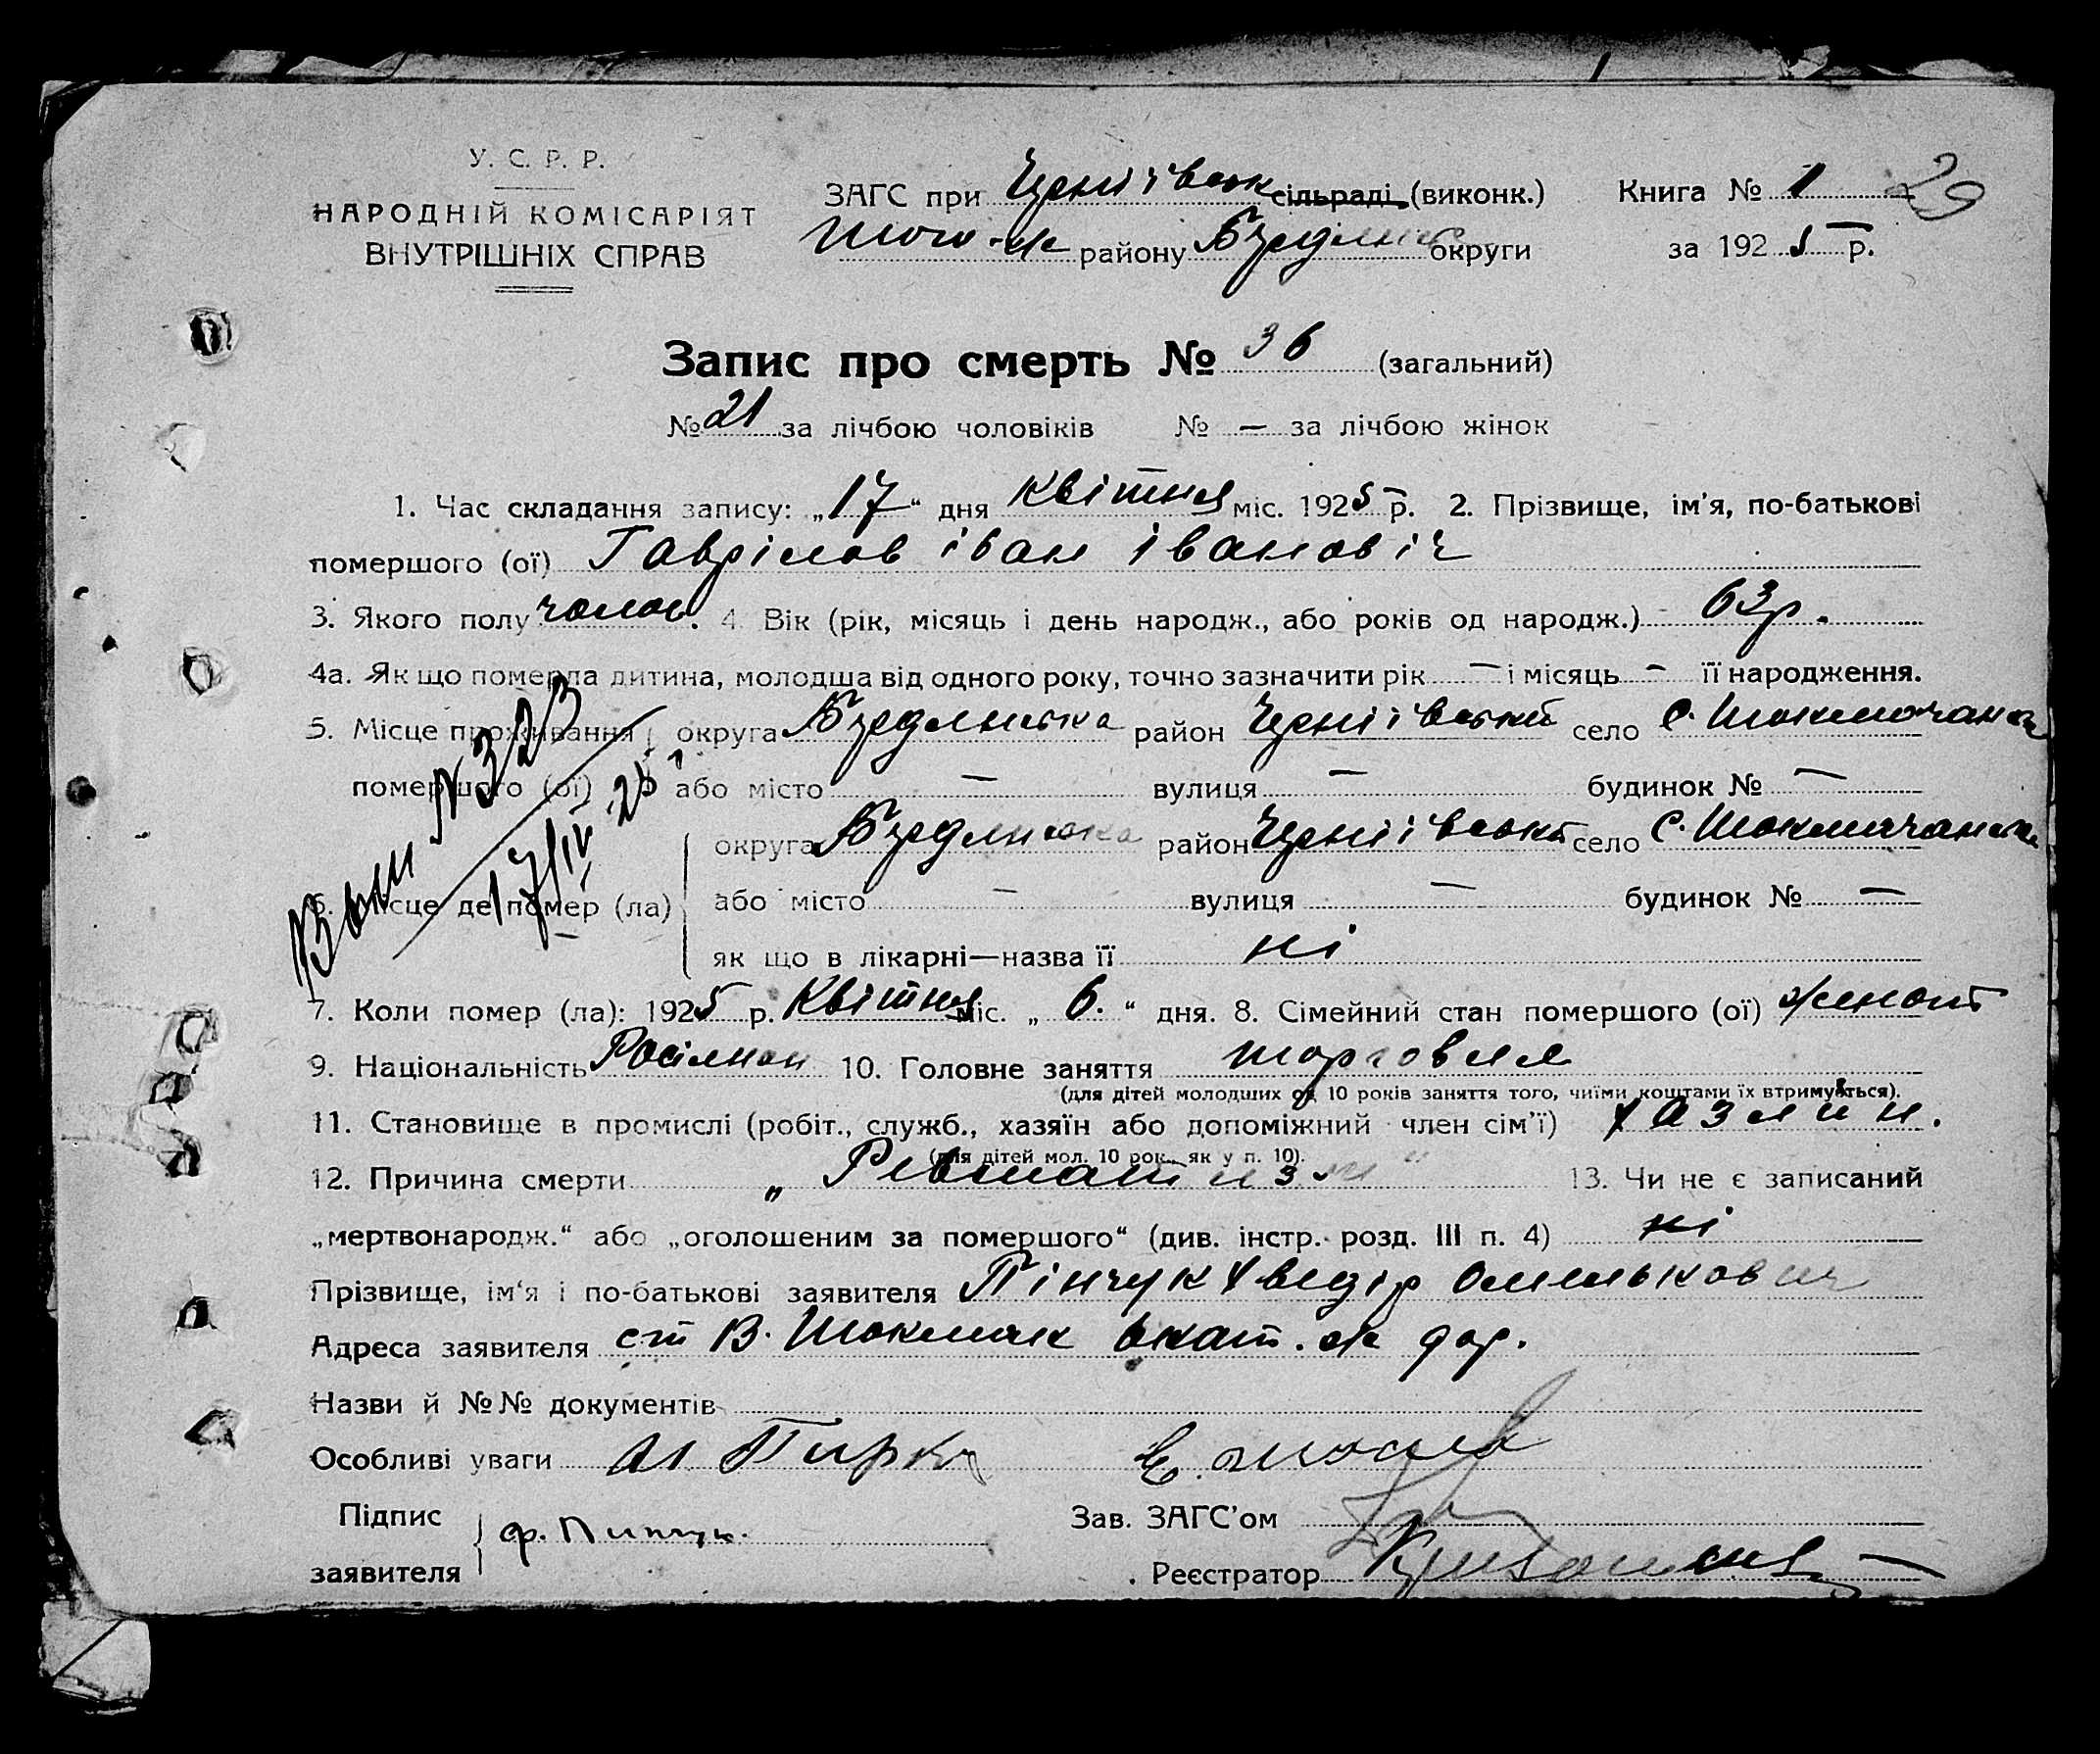 У. С. Р. Р.
НАРОДНІЙ КОМІСАРІЯТ
ВНУТРІШНІХ СПРАВ
ЗАГС при сільраді, (виконк.)
Того-ж району округи
Книга № 1 29
за 1925 р.
Запис про смерть № 36 (загальний)
№ 21 за лічбою чоловіків № — за лічбою жінок
1. Час складання запису: „17“ дня Квітня міс. 1925 р. 2. Прізвище, ім'я, по-батькові
помершого (ої) Гаврілов іван івановіч
3. Якого полу чолов. 4. Вік (рік, місяць і день народж., або років од народж.) 63р.
4а. Як що померла дитина, молодша від одного року, точно зазначити рік — і місяць — її народження.
5. Місце проживання округа район село С.
помершого (ої) або місто — вулиця — будинок № —
N 323
17/IV 25
округа район село С.
6. Місце де помер (ла) або місто — вулиця — будинок № —
як що в лікарні—назва її ні
7. Коли помер (ла): 1925 р. Квітня міс. „6.“ дня. 8. Сімейний стан помершого (ої) жонат
9. Національність 10. Головне заняття торговля
(для дітей молодших од 10 років заняття того, чиїми коштами їх втримується).
11. Становище в промислі (робіт., служб., хазяїн або допоміжний член сім'ї) хазяин.
(для дітей мол. 10 рок., як у п. 10).
12. Причина смерти „Ревматизм“ 13. Чи не є записаний
„мертвонародж.“ або „оголошеним за помершого“ (див. інстр. розд. III п. 4) ні
Прізвище, ім'я і по-батькові заявителя Пінчук Хведір Омелькович
Адреса заявителя ст В. Токмак Екат. ж дор.
Назви й №№ документів
Особливі уваги
Підпис
заявителя ф. Пинчук.
Зав. ЗАГС'ом
Реєстратор